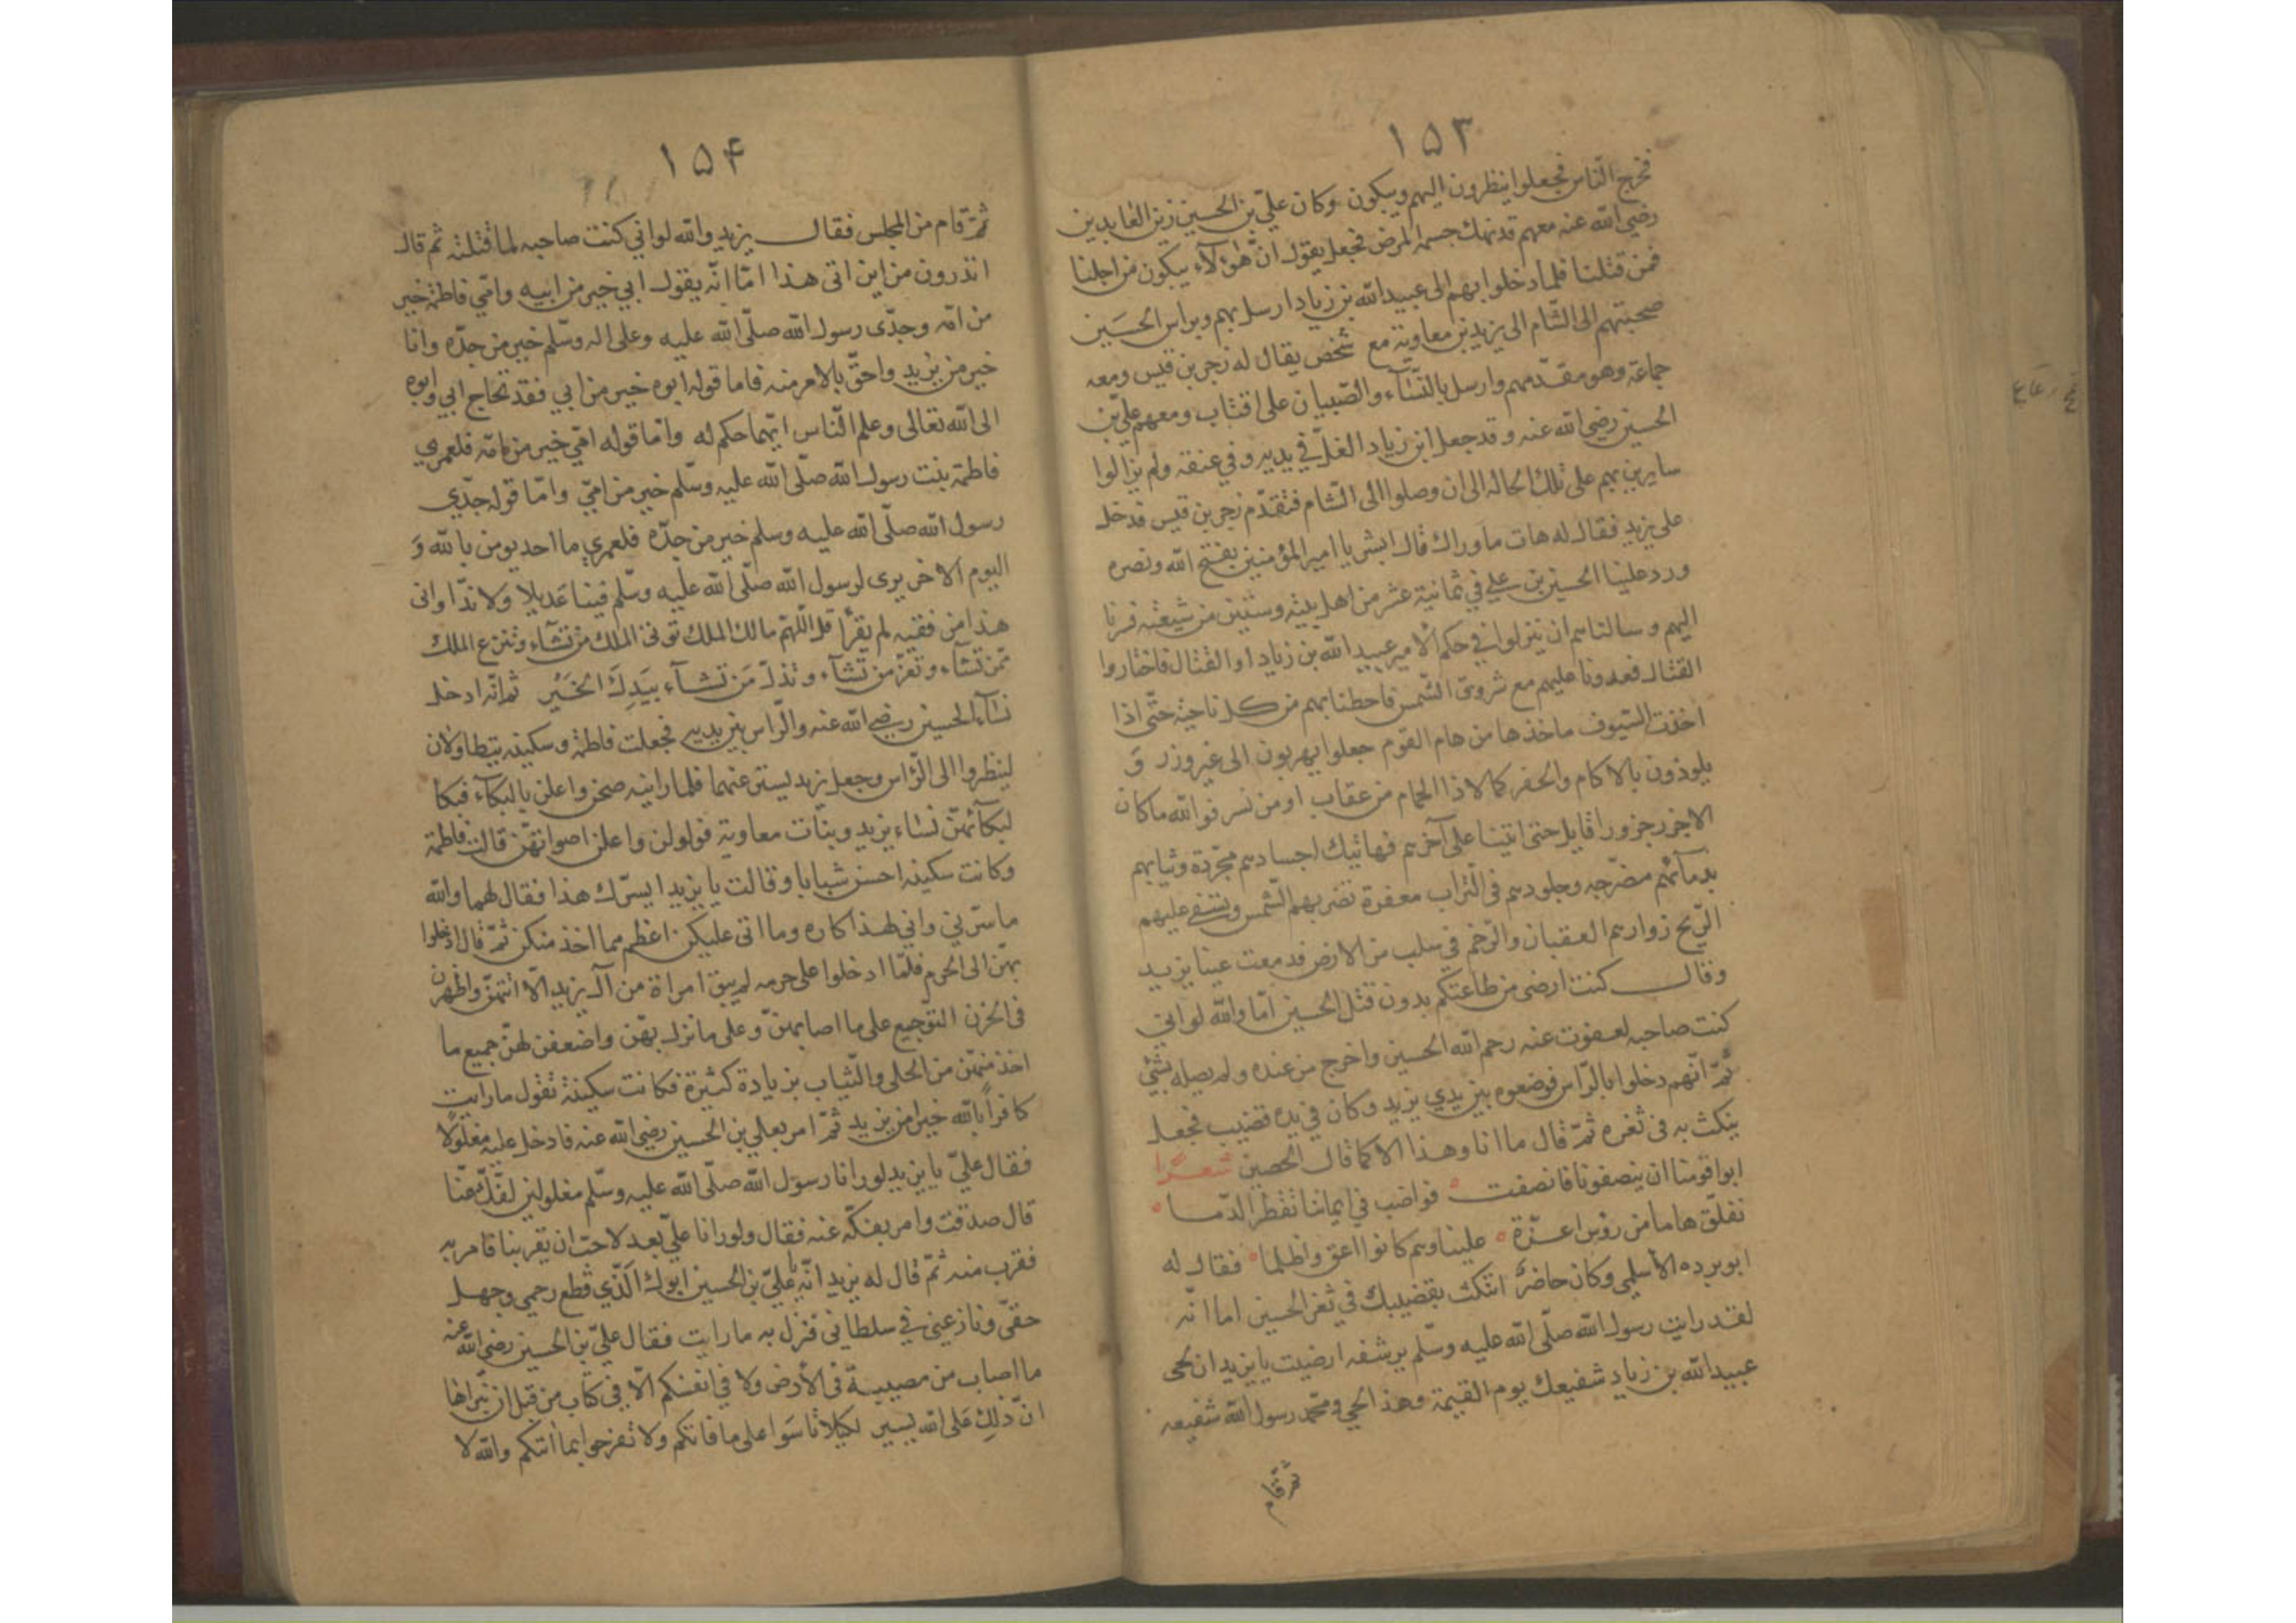 ١٥٣
فخرج الناس فجعلوا ينظرون اليهم ويبكون وكان عليّ بن الحسين زين العابدين
رضي الله عنه معهم قد نهك جسمه المرض فجعل يقول انّ هٰؤلآء يبكون من اجلنا
فمن قتلنا فلما دخلوا بهم الى عبيد الله بن زياد ارسل بهم وبراس الحسَين
صحبتهم الى الشام الى يزيد بن معاوية مع شخص يقال له زجر بن قيس ومعه
جماعة وهو مقدّمهم وارسل بالنّسآء والصّبيان على اقتاب ومعهم عليّ بن
الحسين رضي الله عنه وقد جعل ابن زياد الغلّ في يديه وفي عنقه ولم يزالوا
سايرين بهم على تلك الحاله الى ان وصلوا الى الشام فتقدّم زجر بن قيس فدخل
على يزيد فقال له هات ماوراك قال ابشر يا امير المؤمنين بفتح الله ونصره
ورد علينا الحسين بن علي في ثمانية عشر من اهل بيته وستين من شيعته فسرنا
اليهم وسالناهم ان ينزلوا في حكم الامير عبيد الله بن زياد او القتال فاختاروا
القتال فعدونا عليهم مع شروق الشمس فاحطنا بهم من كل ناحية حتّى اذا
اخذت السّيوف ماخذها من هام القوم جعلوا يهربون الى غير وزر وَ
يلوذون بالاكام والحفر كما لاذا الحمام من عقاب او من نسر فوالله ماكان
الا جزر جزورا قايل حتى اتينا على آخرهم فهاتيك اجسادهم مجرّدة وثيابهم
بدمآئهم مضرّجه وجلودهم في التراب معفرة تضر بهم الشمس وتسفي عليهم
الرّيح زوارهم العقبان والرّخم في سلب من الارض فدمعت عينا يزيد
وقال كنت ارضى من طاعتكم بدون قتل الحسين امّا والله لو اني
كنت صاحبه لعفوت عنه رحم الله الحسين واخرج من عنده ولم يصله بشئ
ثمّ انّهم دخلوا بالرّاس فوضعوه بين يدي يزيد وكان في يده قضيب فجعل
ينكث به في ثغره ثمّ قال ما انا وهذا الا كما قال الحصين شعرًا
ابوا قومنا ان ينصفونا فانصفت ه قواضب في ايماننا تقطر الدّما ه
نفلّق هاما من رؤس اعزّة ه علينا وهم كانوا اعق واظلما ه فقال له
ابوبرده الأسلمي وكان حاضرًا اتنكث بقضيبك في ثغر الحسين اما انّه
لقد رايت رسول الله صلّى الله عليه وسلّم يرشفه ارضيت يا يزيد ان يجى
عبيد الله بن زياد شفيعك يوم القيمة وهذا يجي ومحمّد رسول الله شفيعه
ثمّ قام
١٥۴
ثمّ قام من المجلس فقال يزيد والله لو اني كنت صاحبه لما قتلته ثم قال
اتدرون من اين اتى هذا امّا انّه يقول ابي خير من ابيه وامّي فاطمة خير
من امّه وجدّي رسول الله صلّى الله عليه وعلى اله وسلّم خير من جدّه وانا
خير من يزيد واحقّ بالامر منه فاما قوله ابوه خير من ابي فقد تحاج ابي وابوه
الى الله تعالى وعلم النّاس ايّهما حكم له وامّا قوله امّي خير من امّه فلعمري
فاطمة بنت رسول الله صلّى الله عليه وسلّم خير من امّي وامّا قوله جدّي
رسول الله صلّى الله عليه وسلم خير من جدّه فلعمري ما احد يومن بالله وَ
اليوم الاخر يرى لرسول الله صلّى الله عليه وسلّم فينا عَديلا ولا ندّا واتى
هذا من فقيه لم يقرأ قل اللّهمّ مالك الملك توتى الملك من تشآء وتنزع الملك
ممّن تشآء وتعزّ من تشآء وتذلّ مَن تشآء بيَدِكَ الخَيْر ثم انّه ادخل
نسآء الحسين رضي الله عنه والرّاس بين يديه فجعلت فاطمة وسكينه يتطاولان
لينظروا الى الرّاس وجعل يزيد يستر عنهما فلما راينه صخن واعلن بالبكآء فبكا
لبكآئهنّ نسآء يزيد وبنات معاوية فولولن واعلن اصواتهنّ قالت فاطمة
وكانت سكينه احسن شبابا وقالت يا يزيد ايسرّك هذا فقال لهما والله
ما سرّني واني لهذا كاره وما اتى عليكن اعظم مما اخذ منكن ثمّ قال ادخلوا
بهنّ الى الحرم فلمّا ادخلوا على حرمه لم يبق امراة من آل يزيد الّا اتتهنّ واظهرن
في الحزن التوجيع على ما اصابهنّ وعلى ما نزل بهنّ واضعفن لهنّ جميع ما
اخذ منهنّ من الحلى والثّياب بزيادة كثيرة فكانت سكينة تقول ما رايت
كافراً بالله خيرا من يزيد ثمّ امر بعلي بن الحسين رضي الله عنه فادخل عليه مغلولًا
فقال عليّ يا يزيد لو رانا رسول الله صلّى الله عليه وسلّم مغلولين لفكّ عنّا
قال صدقت وامر بفكّه عنه فقال ولو رانا عليّ بعد لاحبّ ان يقربنا فامر به
فقرب منه ثمّ قال له يزيد انّه يا عليّ بن الحسين ابوك الّذي قطع رحمي وجهل
حقّي ونازعني في سلطاني فنزل به ما رايت فقال عليّ بن الحسين رضي الله عنه
ما اصاب من مصيبة في الأرض ولا في انفسكم الّا في كتاب من قبل ان نبراها
انّ ذلِك عَلى الله يسير لكيلا تاسَوا على ما فاتكم ولا تفرحوا بما اٰتٰكم والله لا